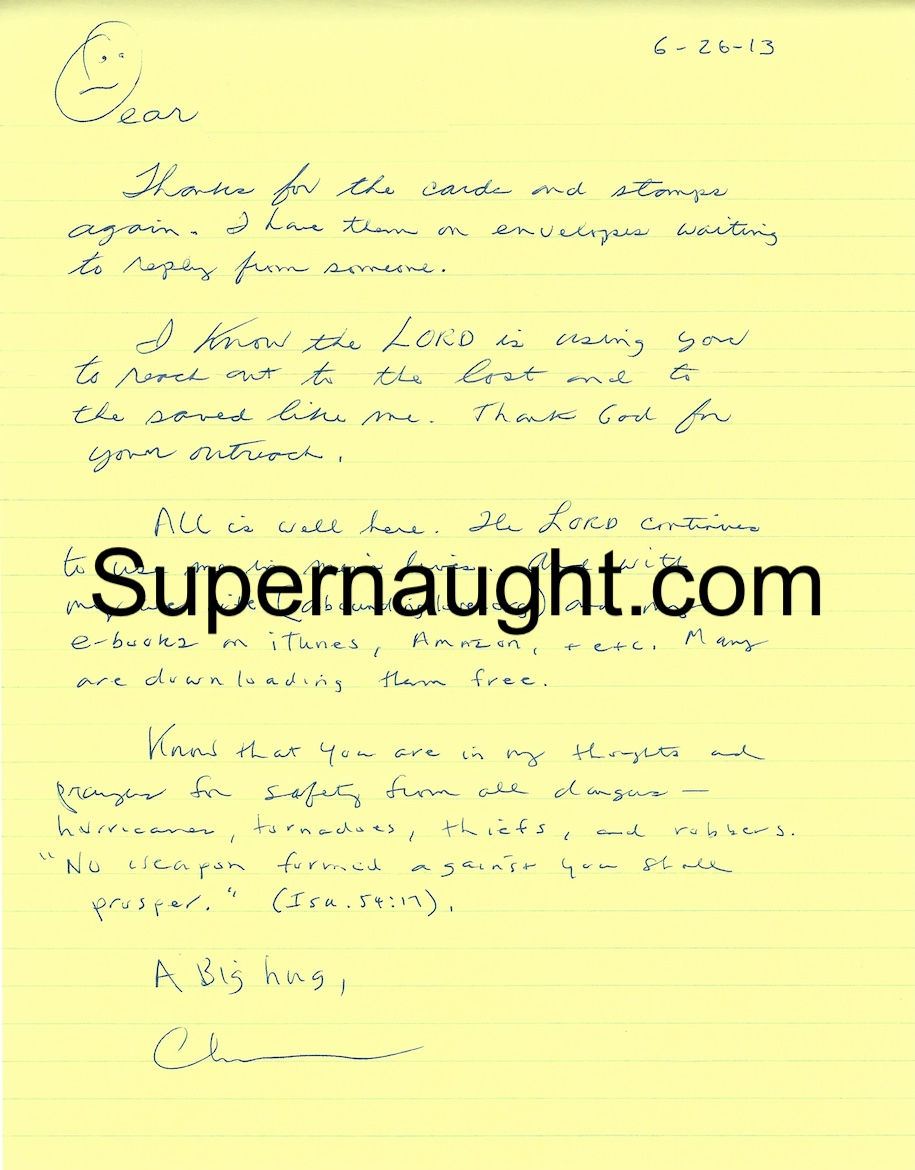 6-26-13
Dear
Thanks for the cards and stamps
again. I have them on envelopes waiting
to reply from someone.
I Know the LORD is using you
to reach out to the lost and to
the saved like me. Thank God for
your outreach.
All is well here. The LORD continues
to use me in men's lives. And with
Supernaught.com
my (aboundinglove.org) and my
e-books on iTunes, Amazon, + etc. Many
are downloading them free.
Know that you are in my thoughts and
prayers for safety from all dangers —
hurricanes, tornadoes, thiefs, and robbers.
"No weapon formed against you shall
prosper." (Isa. 54:17).
A Big hug,